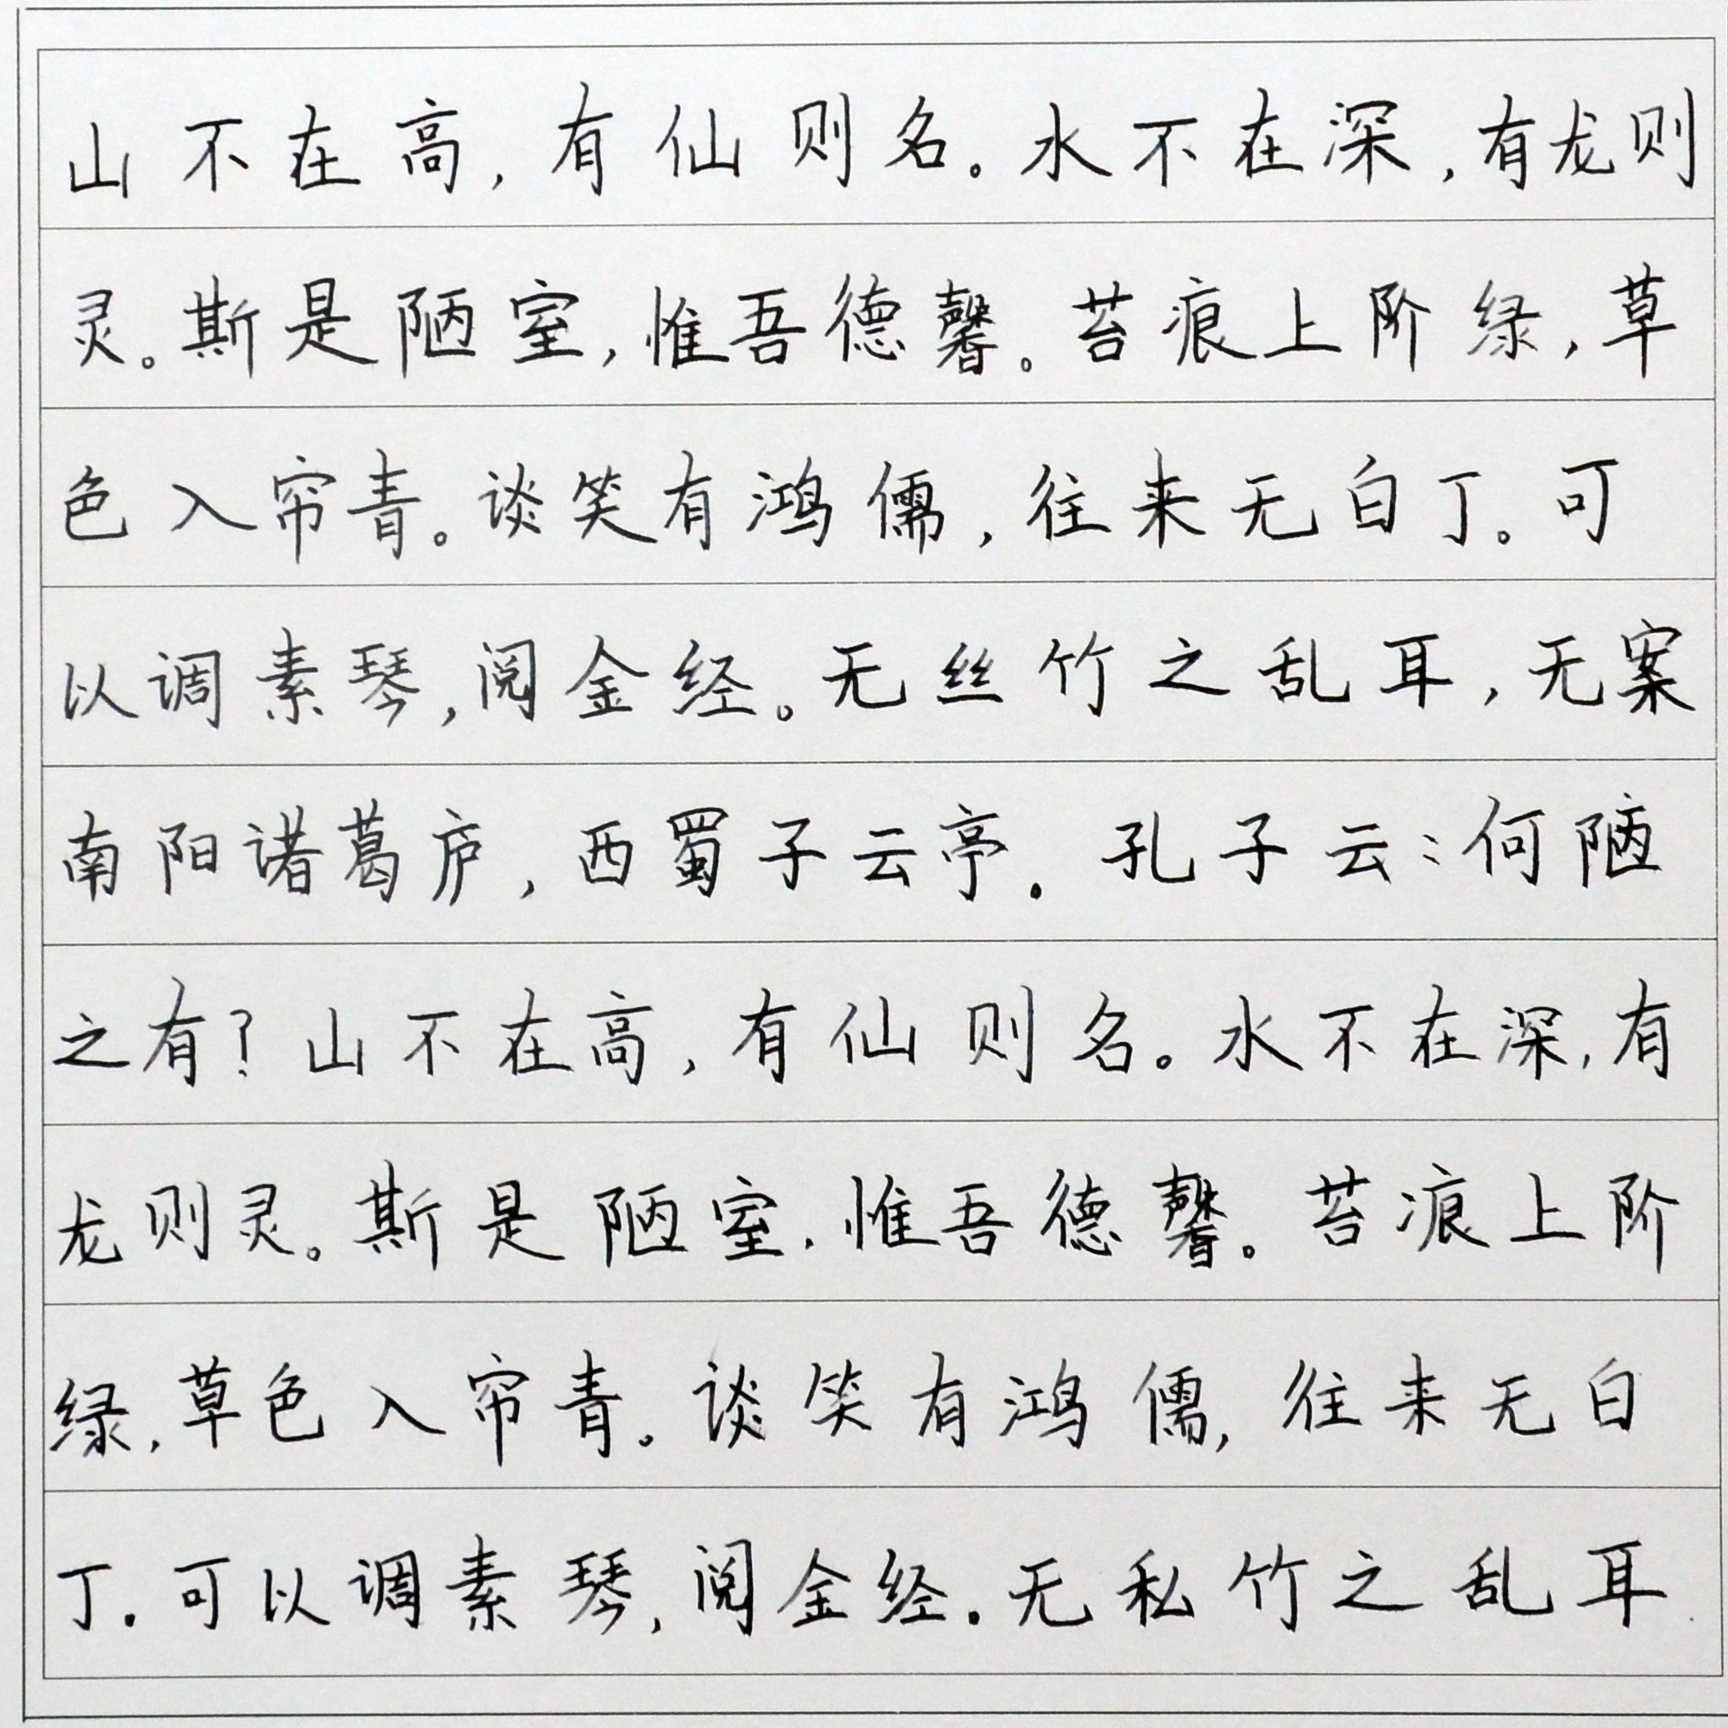 山不在高，有仙则名。水不在深，有龙则
灵。斯是陋室，惟吾德馨。苔痕上阶绿，草
色入帘青。谈笑有鸿儒，往来无白丁。可
以调素琴，阅金经。无丝竹之乱耳，无案
南阳诸葛庐，西蜀子云亭．孔子云：何陋
之有？山不在高，有仙则名。水不在深，有
龙则灵。斯是陋室．惟吾德馨。苔痕上阶
绿，草色入帘青。谈笑有鸿儒，往来无白
丁．可以调素琴，阅金经．无私竹之乱耳